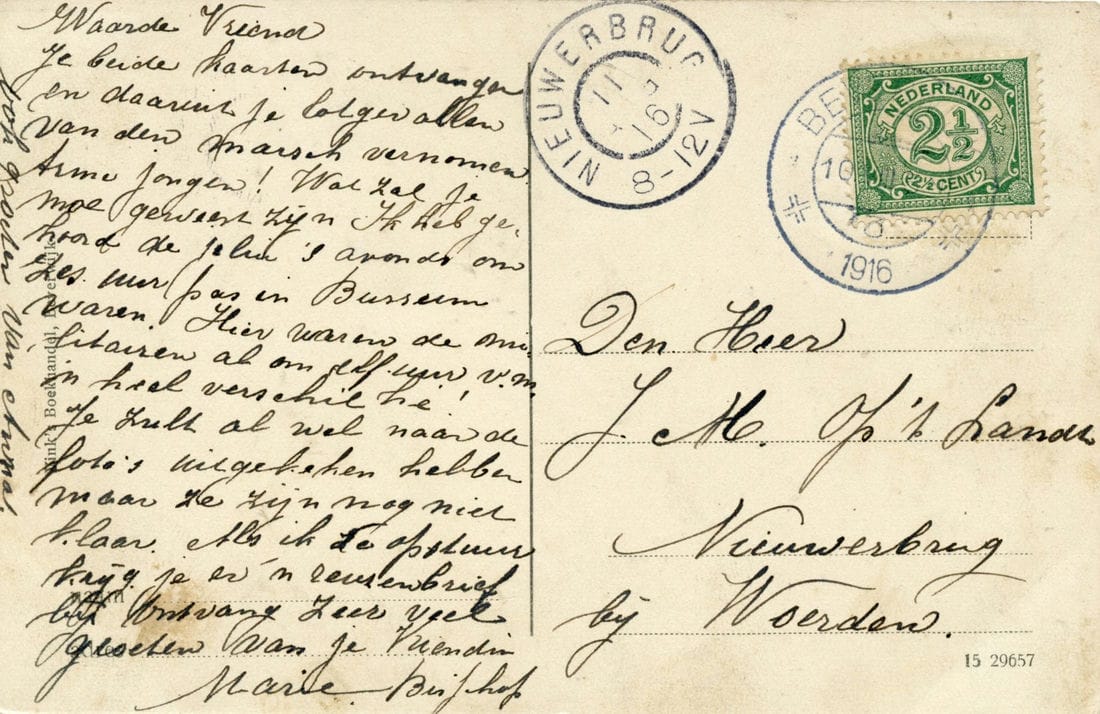 Waarde Vriend
Je beide kaarten ontvangen
en daaruit je lotgevallen
van den marsch vernomen.
Arme jongen! Wat zal je
moe geweest zijn Ik heb ge-
hoord de jelui 's avonds om
zes uur pas in Bussum
waren. Hier waren de mi-
litairen al om elf uur v.m.
'n heel verschil hé!
Je zult al wel naar de
foto's uitgekeken hebben
maar ze zijn nog niet
klaar. Als ik ze opstuur
krijg je er 'n reuzenbrief
bij Ontvang zeer veel
groeten van je Vriendin
Marie Bisschop
groeten van Anna.
Boekhandel,
NIEUWERBRUG
11
16
8-12V
BE
10
16
1916
NEDERLAND
2½
2½ CENT
Den Heer
J. M. Op 't Landt
Nieuwerbrug
bij Woerden.
15 29657